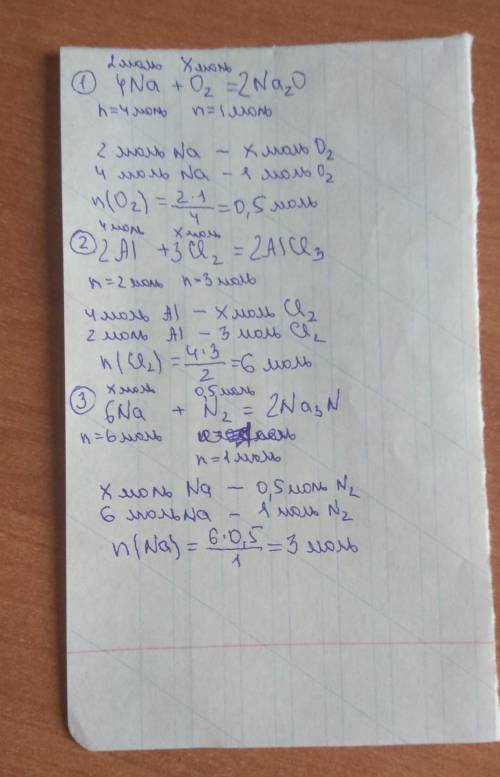 2 моль x моль
① 4Na + O₂ = 2Na₂O
n=4моль n=1моль
2 моль Na – x моль O₂
4 моль Na – 1 моль O₂
n(O₂) = 2·1/4 = 0,5 моль
4 моль x моль
② 2Al + 3Cl₂ = 2AlCl₃
n=2моль n=3моль
4 моль Al – x моль Cl₂
2 моль Al – 3 моль Cl₂
n(Cl₂) = 4·3/2 = 6 моль
x моль 0,5 моль
③ 6Na + N₂ = 2Na₃N
n=6моль
n=1моль
x моль Na – 0,5 моль N₂
6 моль Na – 1 моль N₂
n(Na) = 6·0,5/1 = 3 моль